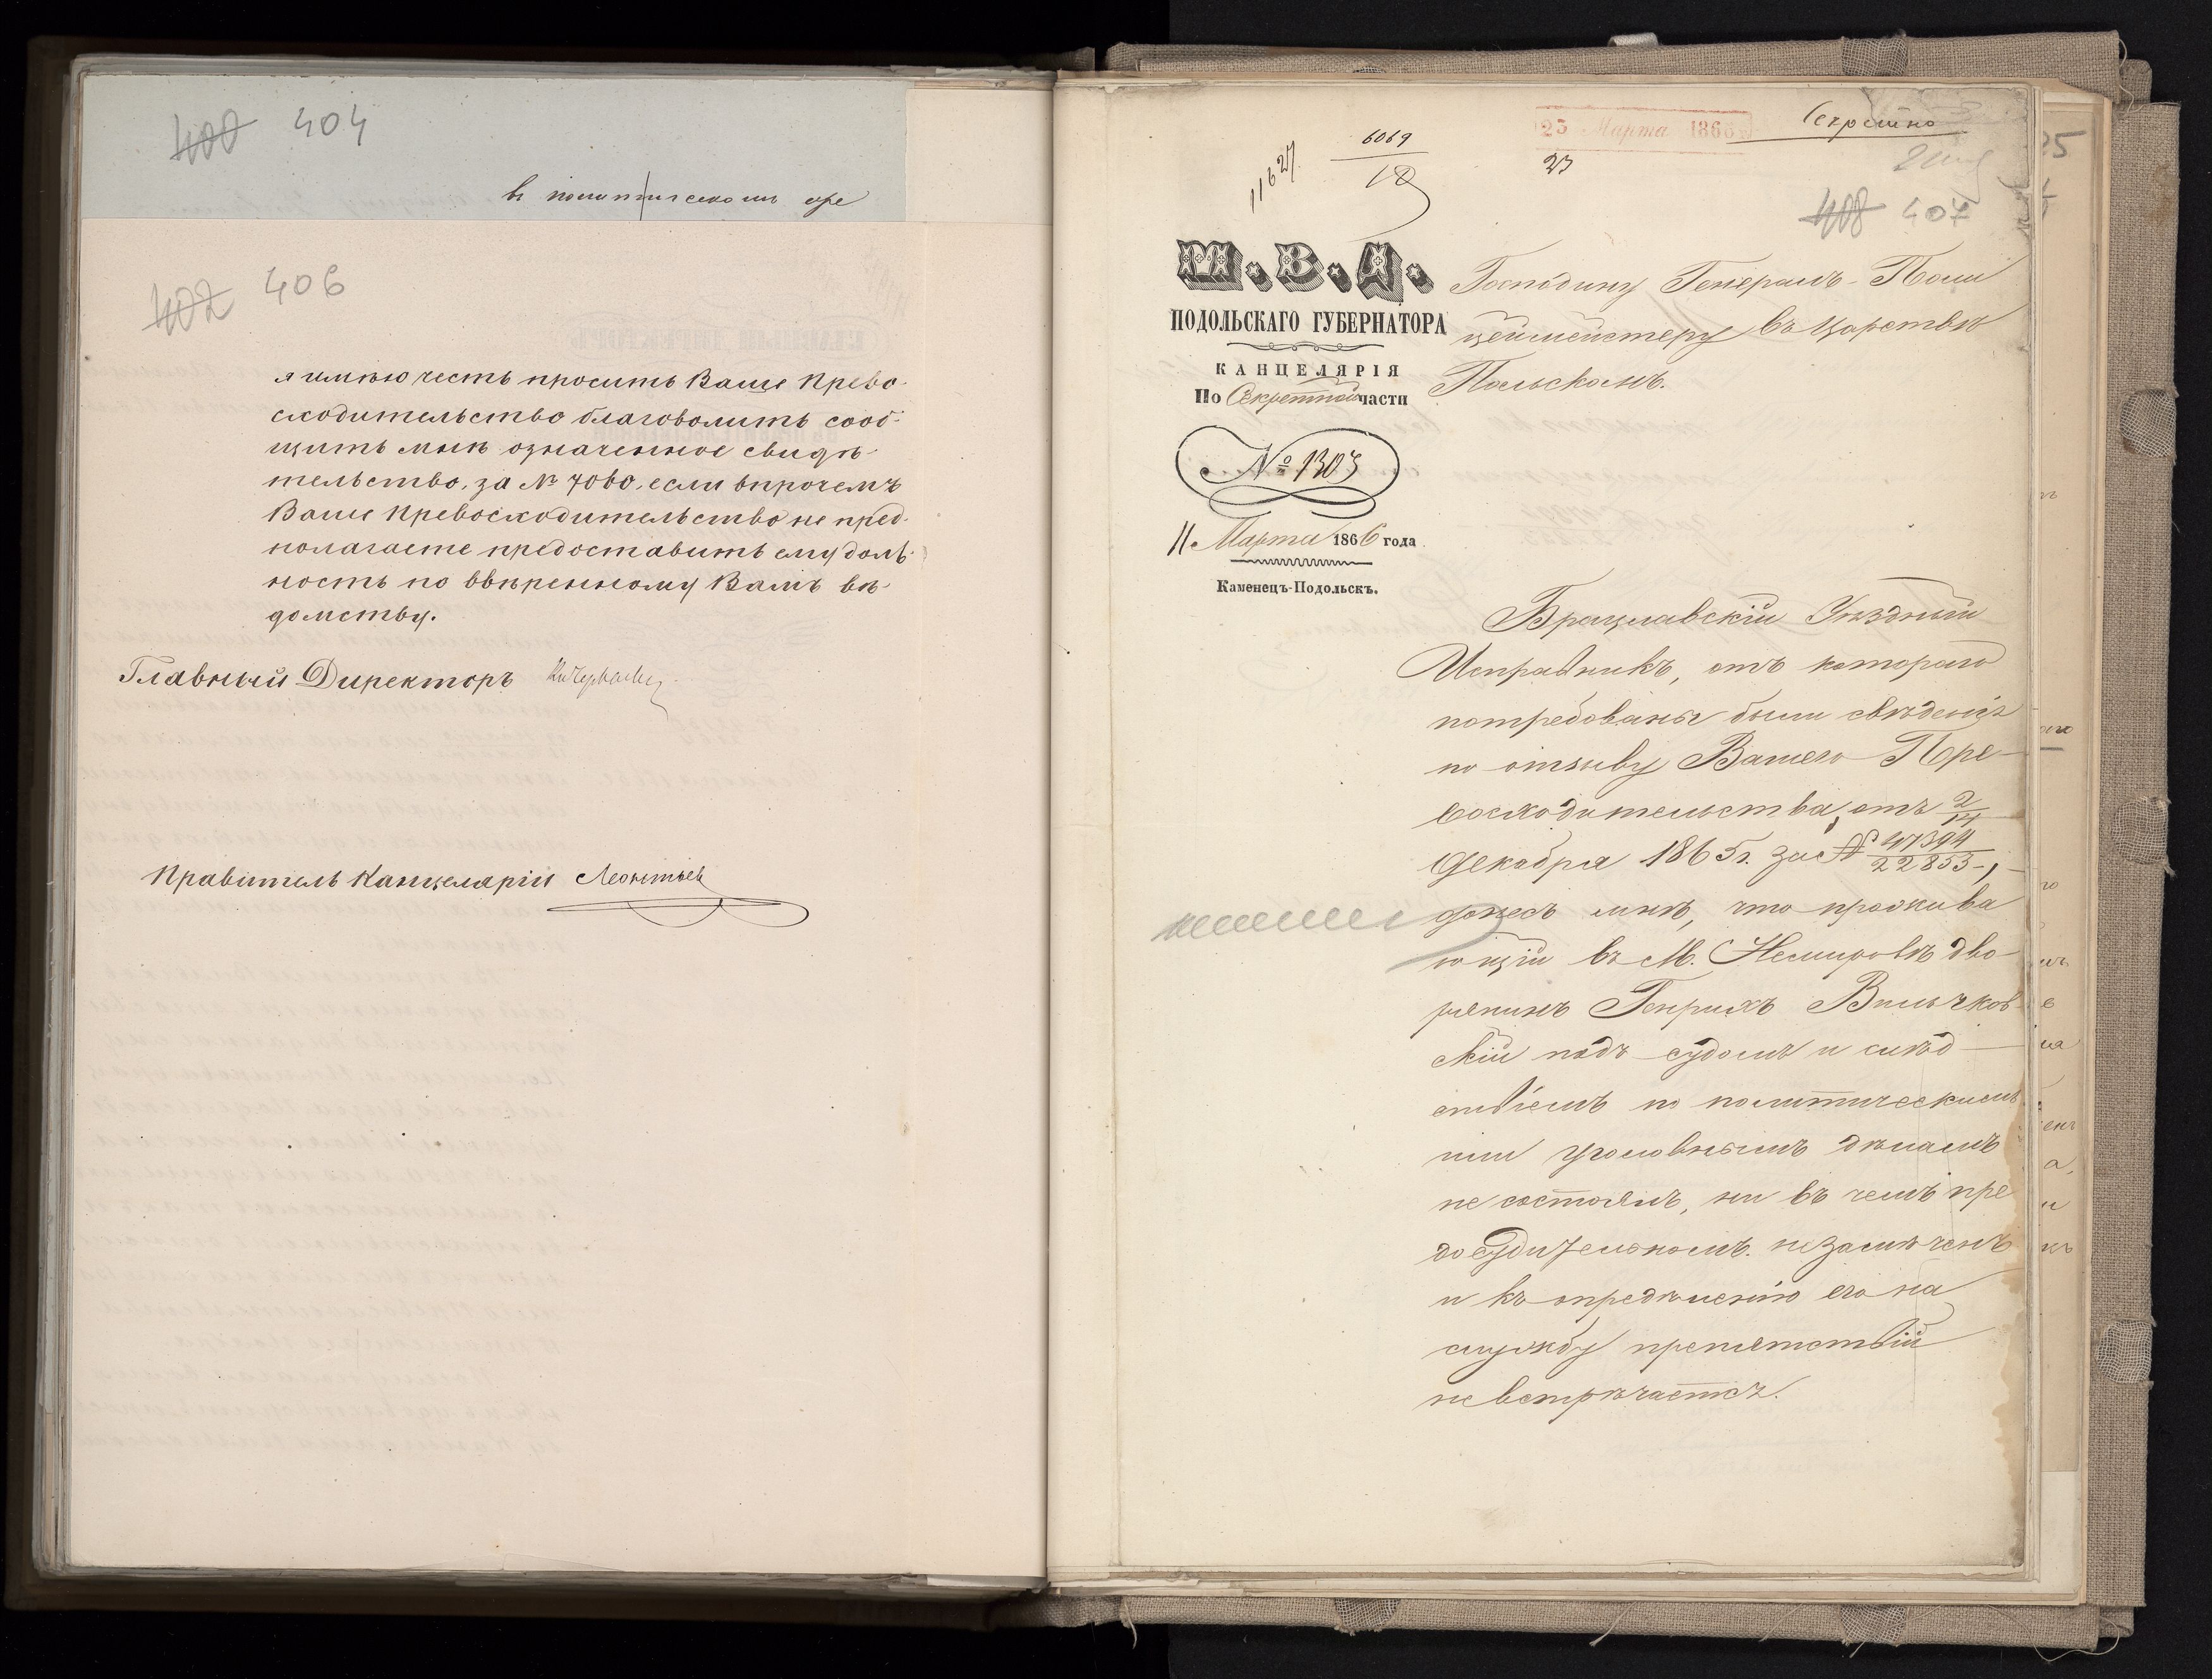 400 404
в политическомъ
402 406
я имѣю честь просить Ваше Прево-
сходительство благоволить сооб-
щить мнѣ означенное свидѣ-
тельство, за № 7060, если впрочемъ
Ваше Превосходительство не пред-
полагаете предоставить ему долж-
ность по ввѣренному Вамъ вѣ-
домству.
Главный Директоръ
Правитель Канцеляріи Леонтьев
Секретно
25 Марта 1866
23
6069
18
408 407
М. В. Д.
ПОДОЛЬСКАГО ГУБЕРНАТОРА
КАНЦЕЛЯРІЯ
По Секретной части
№ 1303
11 Марта 1866 года
Каменецъ-Подольскъ.
Господину Генералъ-Поли
цеймейстеру въ Царствѣ
Польскомъ.
Брацлавскій Уѣздный
Исправникъ, отъ котораго
потребованы были свѣденія
по отзыву Вашего Пре-
восходительства, отъ 2/14
Декабря 1865 г. за № 47394/22853,
донесъ мнѣ, что прожива
ющій въ М. Немировѣ дво-
рянинъ Генрихъ Вильчков-
скій подъ судомъ и слѣд-
ствіемъ по политическимъ
или уголовнымъ дѣламъ
не состоялъ, ни въ чемъ пре
досудительномъ незамѣченъ
и къ опредѣленію его на
службу препятствій
не встрѣчается.